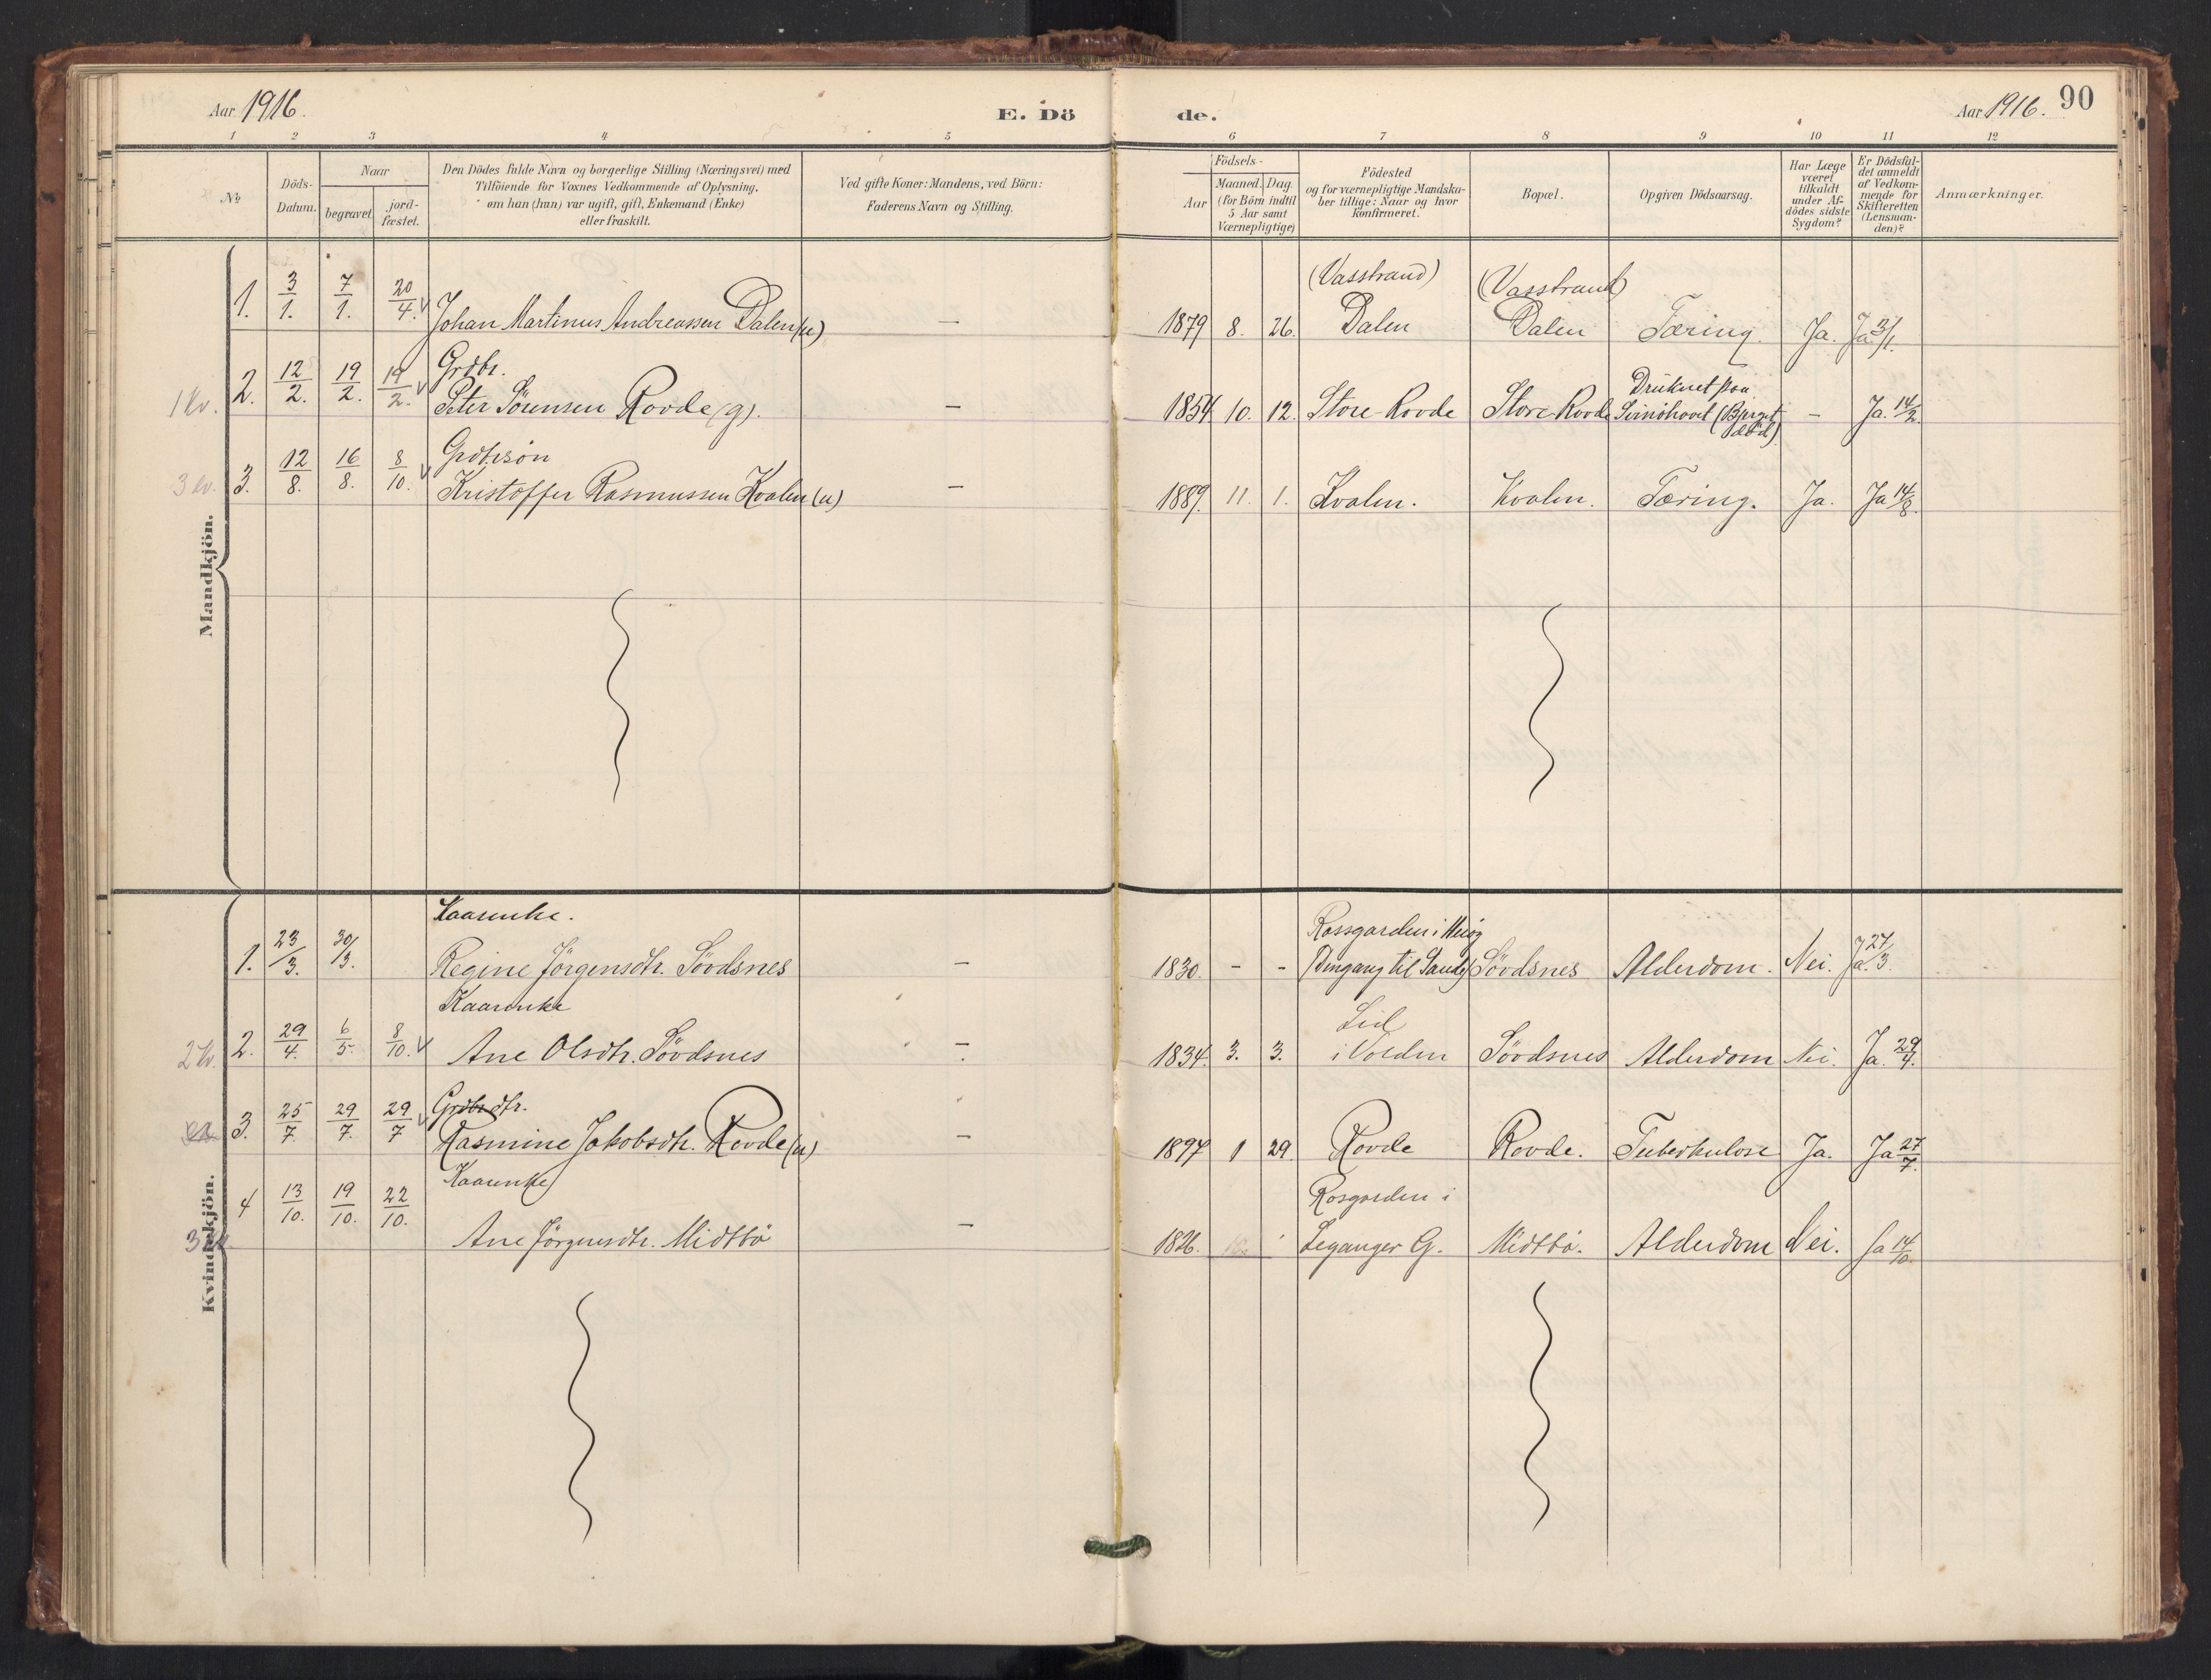 Aar 1916.
E. Dö
de.
Aar 1916. 90
1 2 3 4 5 6 7 8 9 10 11 12
No
Döds-
Datum.
Naar
begravet.
jord-
fæstet.
Den Dödes fulde Navn og borgerlige Stilling (Næringsvei) med
Tilföiende for Voxnes Vedkommende af Oplysning,
om han (hun) var ugift, gift, Enkemand (Enke)
eller fraskilt.
Ved gifte Koner: Mandens, ved Börn:
Faderens Navn og Stilling.
Födsels-
Aar
Maaned. Dag.
(for Börn indtil
5 Aar samt
Værnepligtige)
Födested
og for værnepligtige Mandska-
ber tillige: Naar og hvor
Konfirmeret.
Bopæl.
Opgiven Dödsaarsag.
Har Læge
været
tilkaldt
under Af-
dödes sidste
Sygdom?
Er Dödsfal-
det anmeldt
af Vedkom-
mende for
Skifteretten
(Lensman-
den)?
Anmærkninger.
Mandkjön.
(Vasstrand) (Vasstrand)
1. 3/1. 7/1. 20/4. Johan Martinus Andreassen Dalen (u) — 1879 8. 26. Dalen Dalen Tæring. Ja. Ja 3/1.
Grdbr. Druknet paa
1 kv. 2. 12/2. 19/2. 19/2. Peter Sörensen Rovde (g). — 1854 10. 12. Store-Rovde Store Rovde (Bjerget
död) – Ja. 14/2.
Grdbrsön
3 kv. 3. 12/8. 16/8. 8/10. Kristoffer Rasmussen Kvalen (u) — 1889. 11. 1. Kvalen. Kvalen. Tæring. Ja. Ja 14/8.
Kvindekjön.
Kaarenke. Rossgarden i Heröy
1. 23/3. 30/3. Regine Jörgensdtr. Sövdsnes — 1830. - - Sövdsnes Alderdom. Nei. Ja. 27/3
Kaarenke Lid
2 kv. 2. 29/4. 6/5. 8/10. Ane Olsdtr. Sövdsnes – 1834. 3. 3. i Volden Sövdsnes Alderdom Nei. Ja. 29/4.
Grdbrdtr.
3. 25/7. 29/7. 29/7 Rasmine Jakobsdtr. Rovde (u) — 1897 1 29. Rovde Rovde. Tuberkulose Ja. Ja 27/7.
Kaarenke Rosgarden i
4 13/10. 19/10. 22/10. Ane Jörgensdtr. Midtbö — 1826. Leganger G. Midtbö. Alderdom Nei. Ja 14/10.